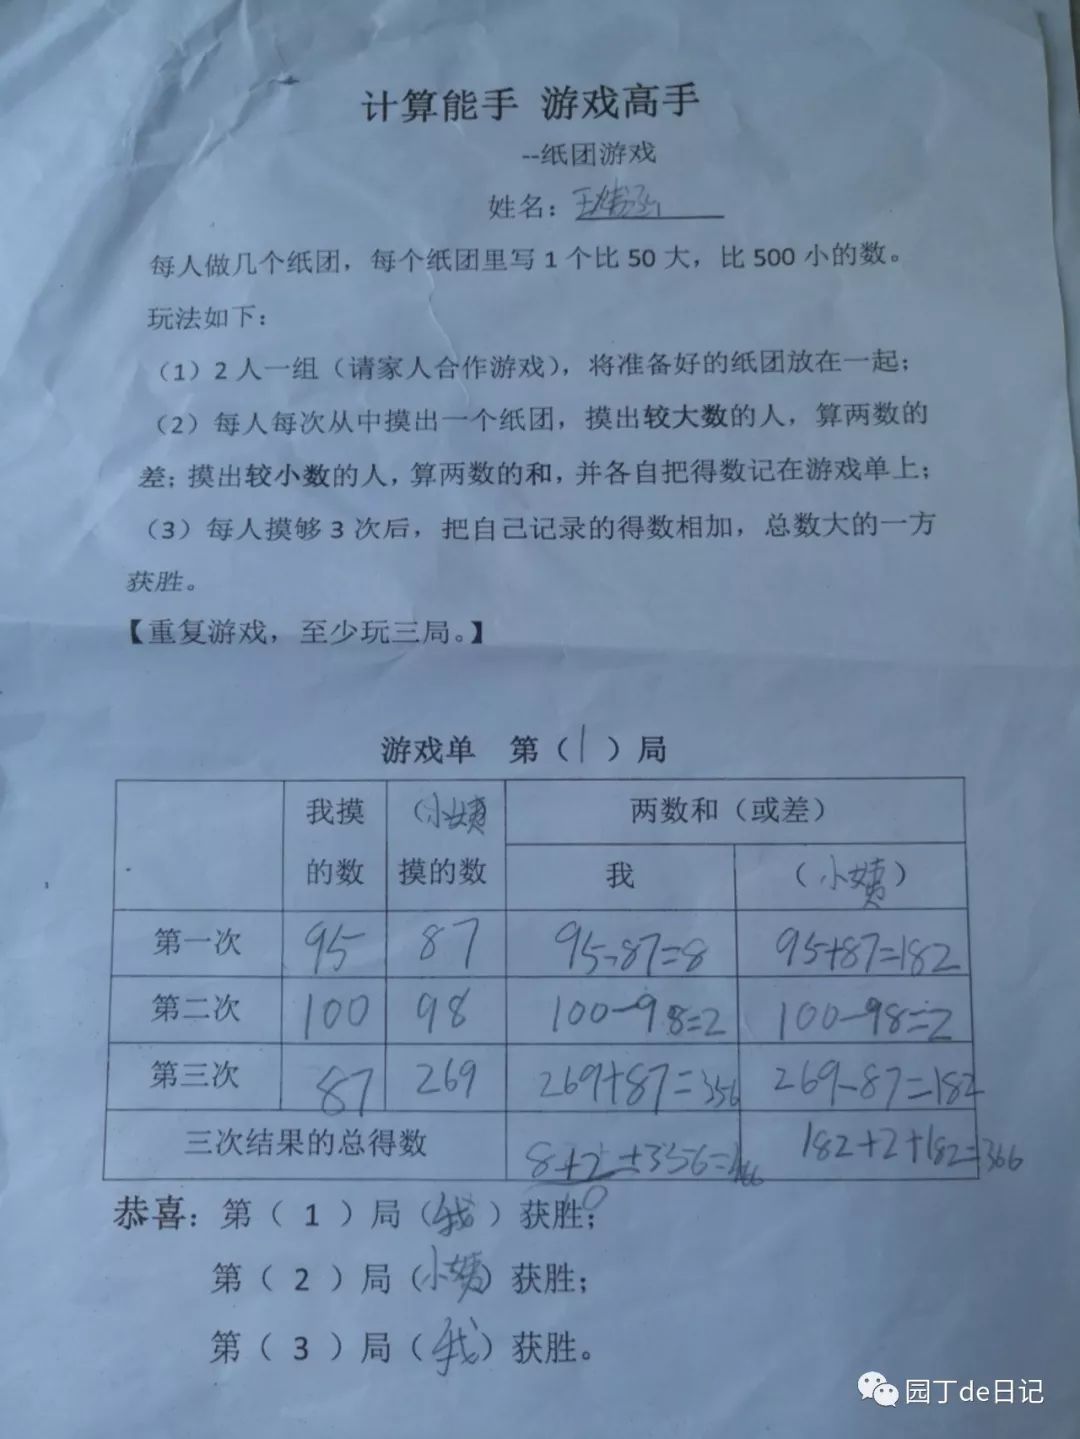 计算能手 游戏高手
--纸团游戏
姓名：
每人做几个纸团，每个纸团里写 1 个比 50 大，比 500 小的数。
玩法如下：
（1）2 人一组（请家人合作游戏），将准备好的纸团放在一起；
（2）每人每次从中摸出一个纸团，摸出较大数的人，算两数的
差；摸出较小数的人，算两数的和，并各自把得数记在游戏单上；
（3）每人摸够 3 次后，把自己记录的得数相加，总数大的一方
获胜。
【重复游戏，至少玩三局。】
游戏单 第（1）局
我摸的数 （小姨 摸的数 两数和（或差）
我 （小姨）
第一次 95 87 95-87=8 95+87=182
第二次 100 98 100-98=2 100-98=2
第三次 87 269 269+87=356 269-87=182
三次结果的总得数 8+2+356= 182+2+182=366
10
恭喜：第（1）局（我）获胜；
第（2）局（小姨）获胜；
第（3）局（我）获胜。
园丁de日记